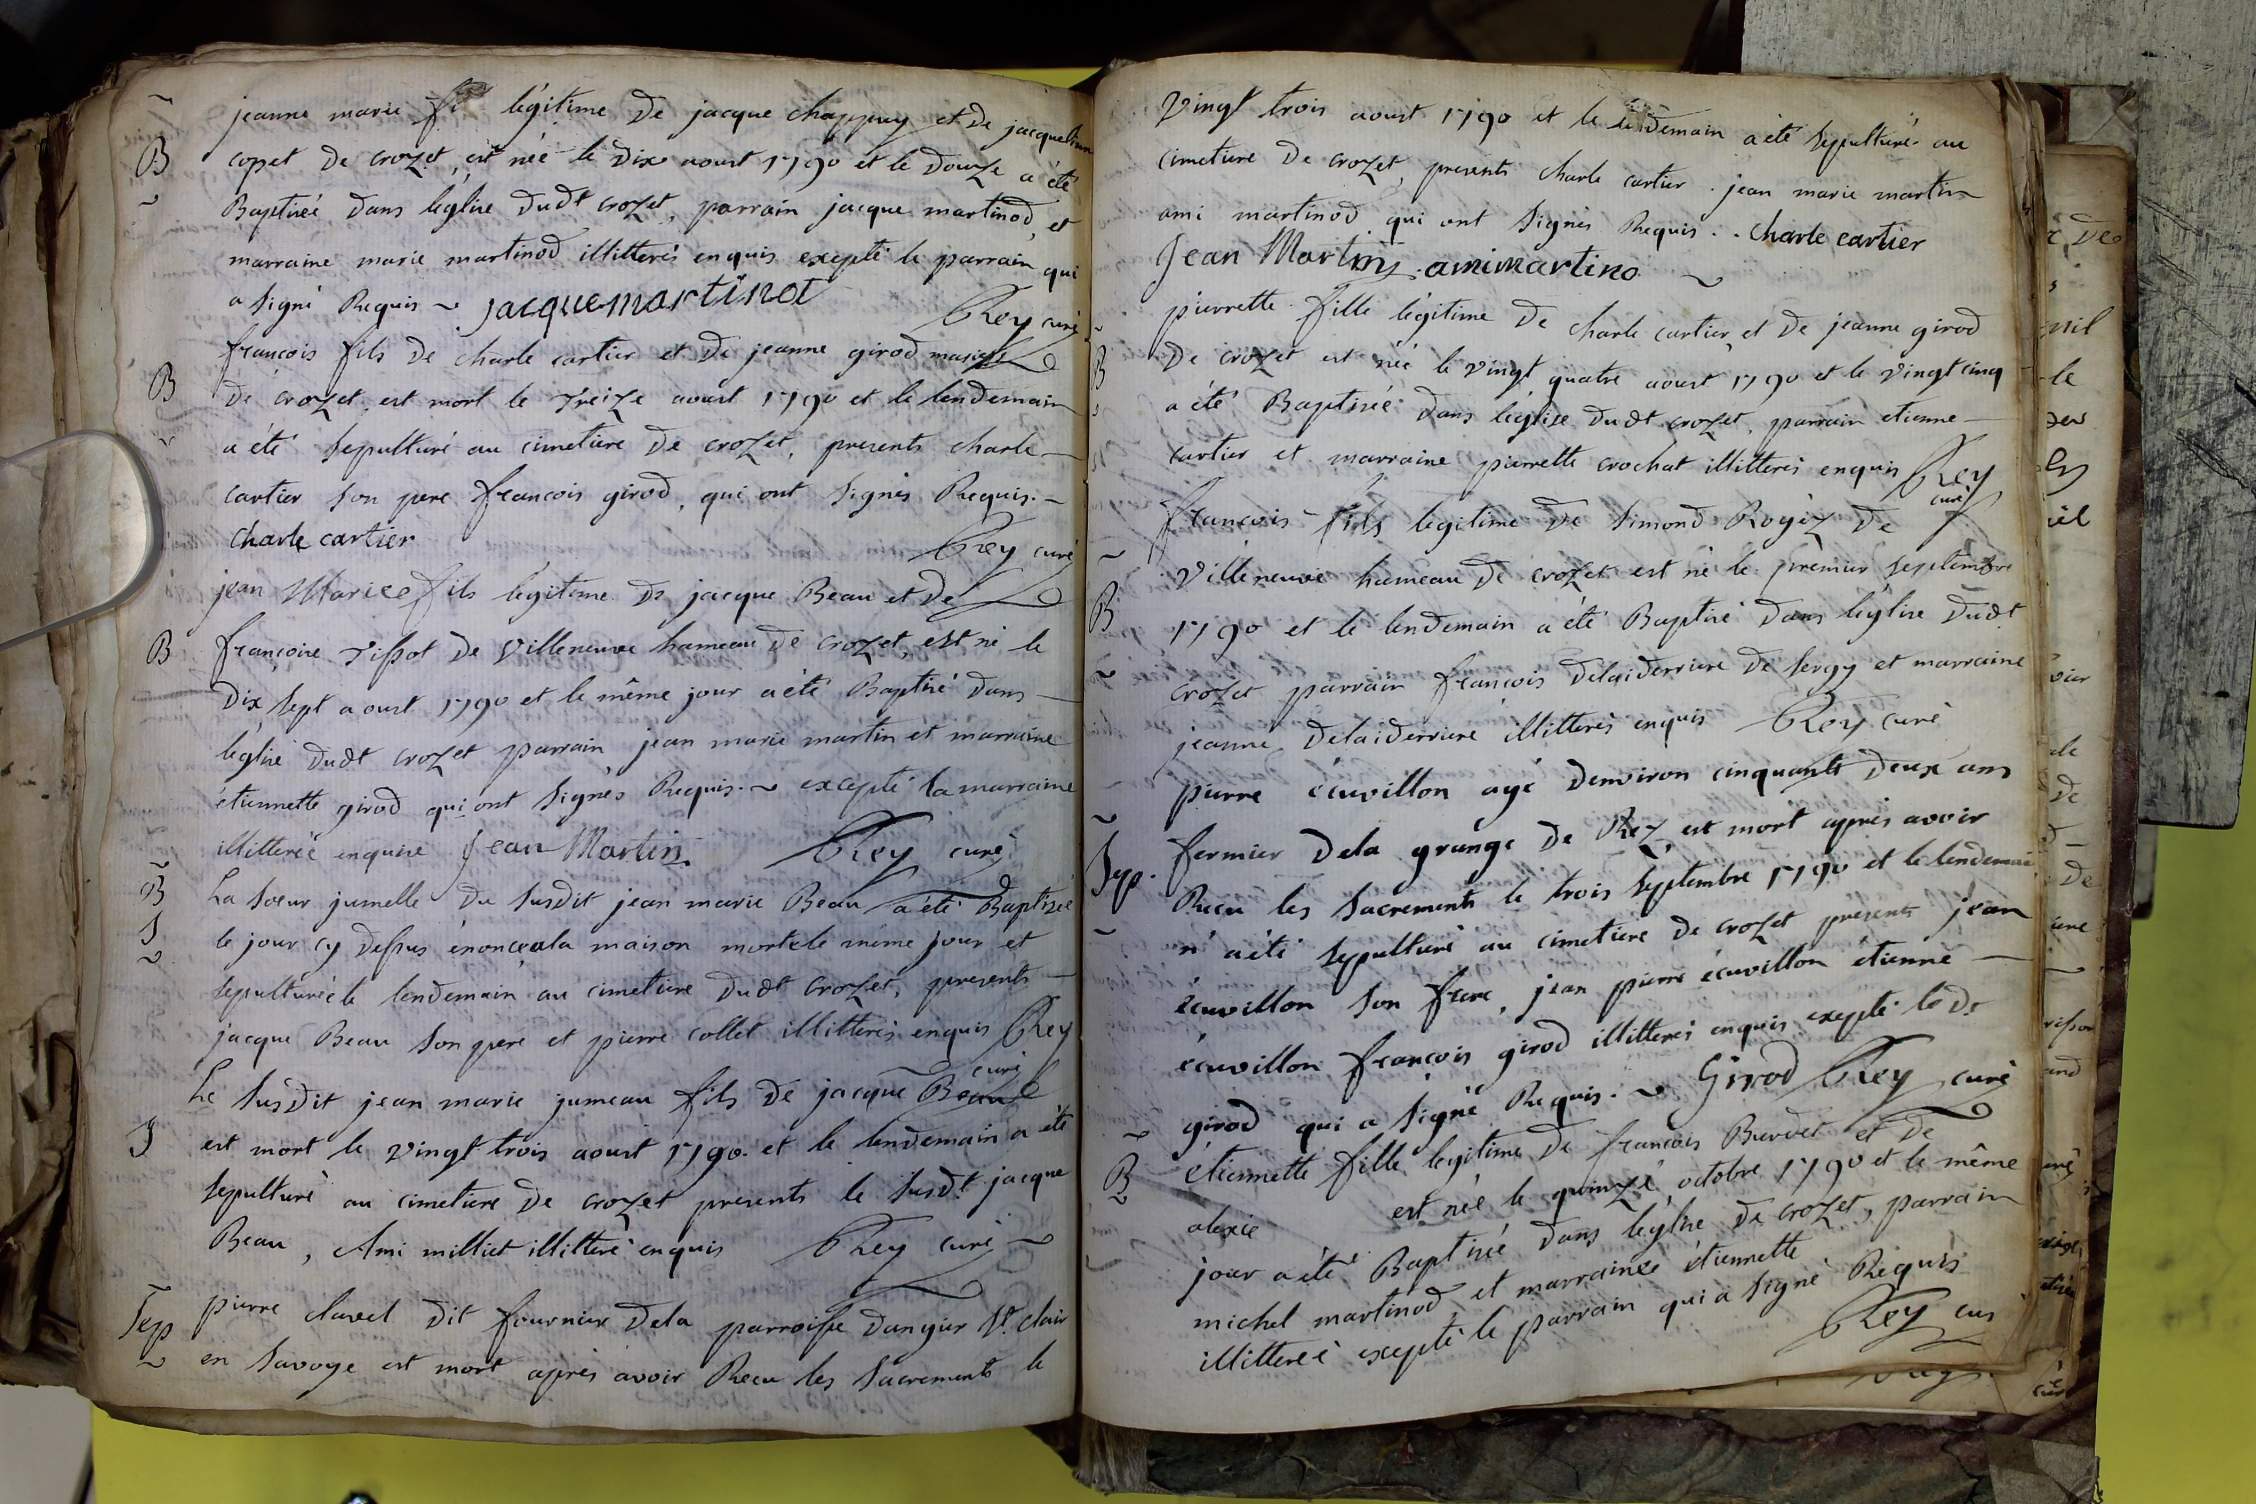 jeanne marie légitime De jacque chappuy et de jacqueline
B copet De crozet, est née le Dix aoust 1790 et le Douze a été
Baptiseé Dans léglise Dudt crozet, parrain jacque martinod, et
marraine marie martinod illitterés enquis excepté le parrain qui
a signé Requis jacque martinot Rey curé
francois fils de charle cartier et de jeanne girod mariés
B De crozet, est mort le treize aoust 1790 et le lendemain
a été sepulturé au cimetiere De crozet, presents charle
cartier son pere francois girod, qui ont signés Requis.
Charle cartier Rey curé
jean Marie fils légitime De jacque Beau et De
B françoise tissot De Villeneuve hameau De crozet, est né le
Dix sept aoust 1790 et le même jour a été Baptisé Dans
léglise Dudt crozet parrain jean marie martin et marraine
étiennette girod qui ont signés Requis. excepté la marraine
illitterée enquise Jean Martin Rey curé
B La soeur jumelle Du susdit jean marie Beau a été Baptisée
S le jour cy Dessus énoncé a la maison morte le même jour et
sepulturée le lendemain au cimetiere Dudt crozet, presents
jacque Beau son pere et pierre collet illitterés enquis Rey
curé
Le susdit jean marie jumeau fils de jacque Beau
S est mort le vingt trois aoust 1790. et le lendemain a été
sepulturé au cimetiere De crozet presents le susdt jacque
Beau, Ami milliet illitteré enquis Rey curé
Sep pierre clavel dit fournier Dela parroisse Dangier St. clair
en Savoye est mort après avoir Recu les Sacrements le
Vingt trois aoust 1790 et le lendemain a été sepulturé au
cimetiere De crozet, presents charle cartier. jean marie martin
ami martinod qui ont signés Requis.. Charle cartier
Jean Martin. ami martino
pierrette fille légitime De charle cartier et De jeanne girod
B De crozet est née le vingt quatre aoust 1790 et le vingt cinq
a été Baptisée Dans léglise Dudt crozet, parrain etienne
cartier et marraine pierrette crochat illitterés enquis Rey
curé
francois fils légitime De simond Rogéz De
Villeneuve hameau De crozet est né le premier septembre
B 1790 et le lendemain a été Baptisé Dans léglise Dudt
crozet parrain francois Delaiderriere De sergy et marraine
jeanne Delaiderriere illitterés enquis Rey curé
pierre écuvillon agé Denviron cinquante Deux ans
fermier Dela grange De Rez, est mort après avoir
Sep. Recu les Sacrements le trois Septembre 1790 et le lendemain
n' a été sepulturé au cimetiere De crozet presents jean
écuvillon son frere, jean pierre écuvillon étienne
écuvillon francois girod illitterés enquis excepté le dt
girod qui a signé Requis. Girod Rey curé
B étiennette fille legitime De francois Burdet et De
alexie est née le quinzé octobre 1790 et le même
jour a été Baptisée Dans léglise De crozet, parrain
michel martinod et marrainée étiennette
illitterée excepté le parrain qui a signé Requis
Rey curé